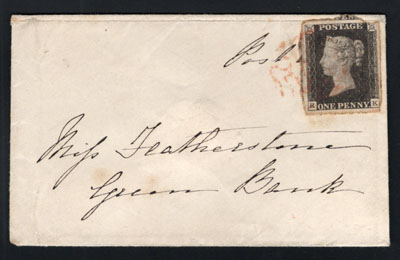 Post
POSTAGE
ONE PENNY
Miss Featherstone
Green Bank